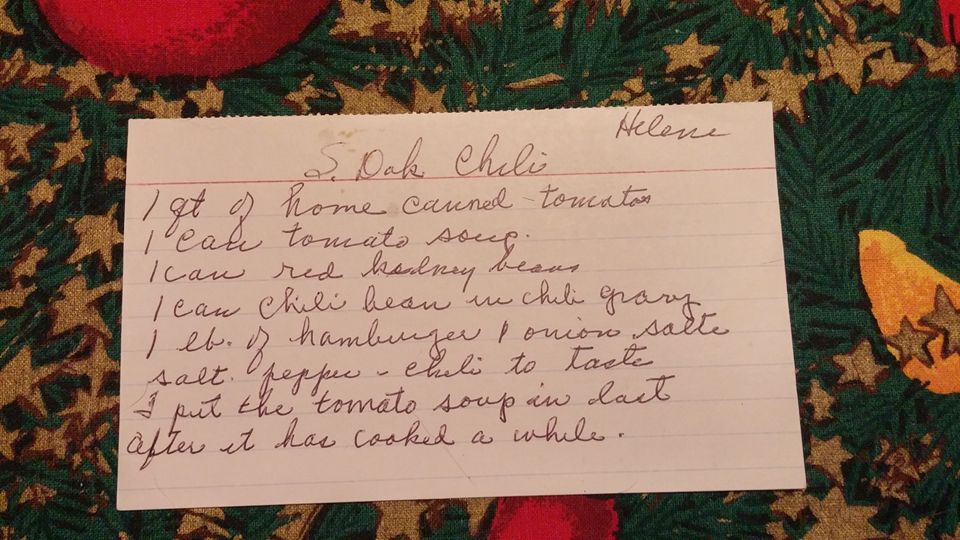 Helene
S. Dak Chili
1 qt of home canned tomatos
1 can tomato soup.
1 can red kidney beans
1 can chili bean in chili gravy
1 lb. of hamburger 1 onion salte
salt. pepper - chili to taste
I put the tomato soup in last
after it has cooked a while.